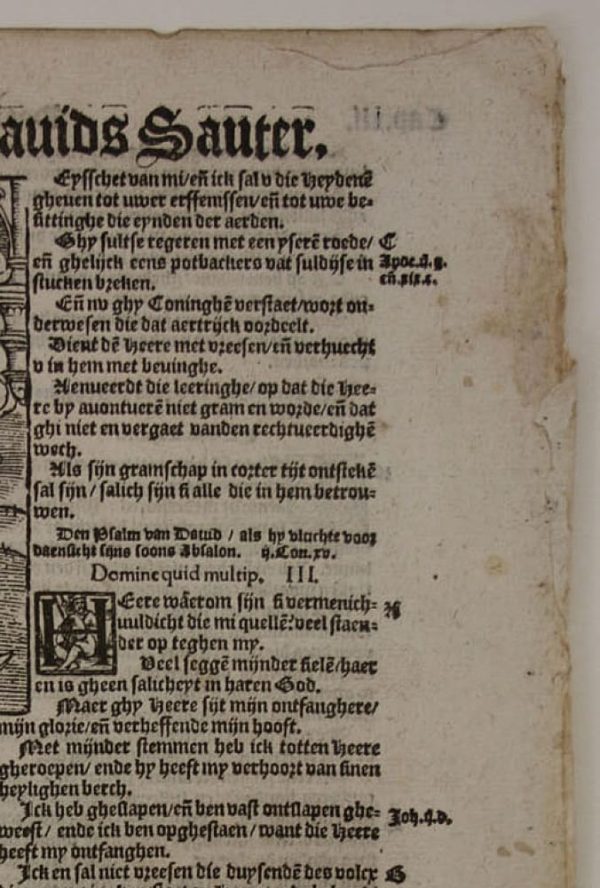 auids Sauter.
Eysschet van mi/en̄ ick sal v die Heydenē
gheuen tot uwer erffenissen/en̄ tot uwe be=
sittinghe die eynden der aerden.
Ghy sultse regeren met een yserē roede/ C
en̄ ghelijck eens potbackers vat suldijse in
stucken breken.
Apoc.
En̄ nu ghy Coninghē verstaet/wort on=
derwesen die dat aertrijck oordeelt.
Dient dē Heere met vreesen/en̄ verhuecht
v in hem met beuinghe.
Aenueerdt die leeringhe/op dat die Hee=
re by auontuerē niet gram en worde/en̄ dat
ghi niet en vergaet vanden rechtueerdighē
wech.
Als sijn gramschap in corter tijt ontstekē
sal sijn/ salich sijn si alle die in hem betrou=
wen.
Den Psalm van Dauid / als hy vluchte voor
daensicht sijns soons Absalon. ij.Con.xv.
Domine quid multip. III.
HEere wāerom sijn si vermenich=
uuldicht die mi quellē? veel staen=
der op teghen my.
Veel seggē mijnder sielē/haer
en is gheen salicheyt in haren God.
Maer ghy Heere sijt mijn ontfanghere/
mijn glorie/en̄ verheffende mijn hooft.
Met mijnder stemmen heb ick totten Heere
gheroepen/ ende hy heeft my verhoort van sinen
heylighen berch.
Ick heb gheslapen/en̄ ben vast ontslapen ghe=
weest/ ende ick ben opghestaen/want die Heere
heeft my ontfanghen.
Ick en sal niet vreesen die duysendē des volcx